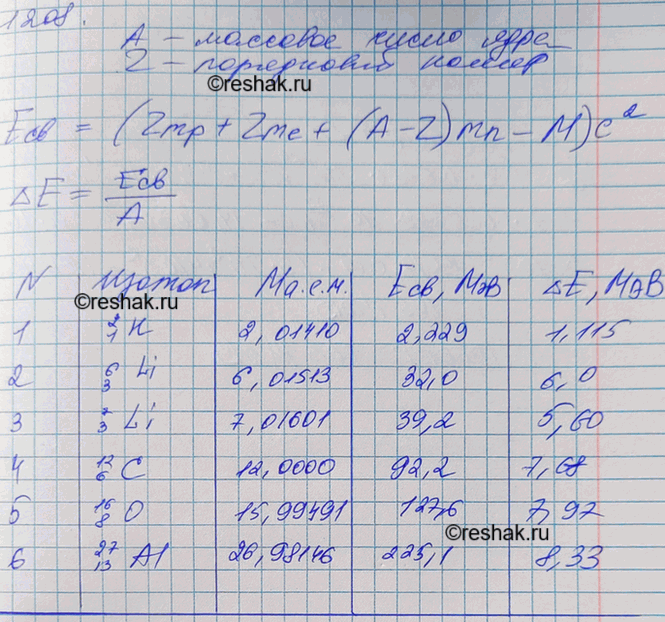 1208.
A – массовое число ядра
Z – порядковый номер
©reshak.ru
Eсв = (Zmp + Zme + (A – Z)mn – M)c²
ΔE = Eсв / A
N Изотоп Ma.е.м. Eсв, МэВ ΔE, МэВ
©reshak.ru
1 ²₁H 2,01410 2,229 1,115
2 ⁶₃Li 6,01513 32,0 6,0
3 ⁷₃Li 7,01601 39,2 5,60
4 ¹²₆C 12,0000 92,2 7,68
5 ¹⁶₈O 15,99491 127,6 7,97
©reshak.ru
6 ²⁷₁₃Al 26,98146 225,1 8,33